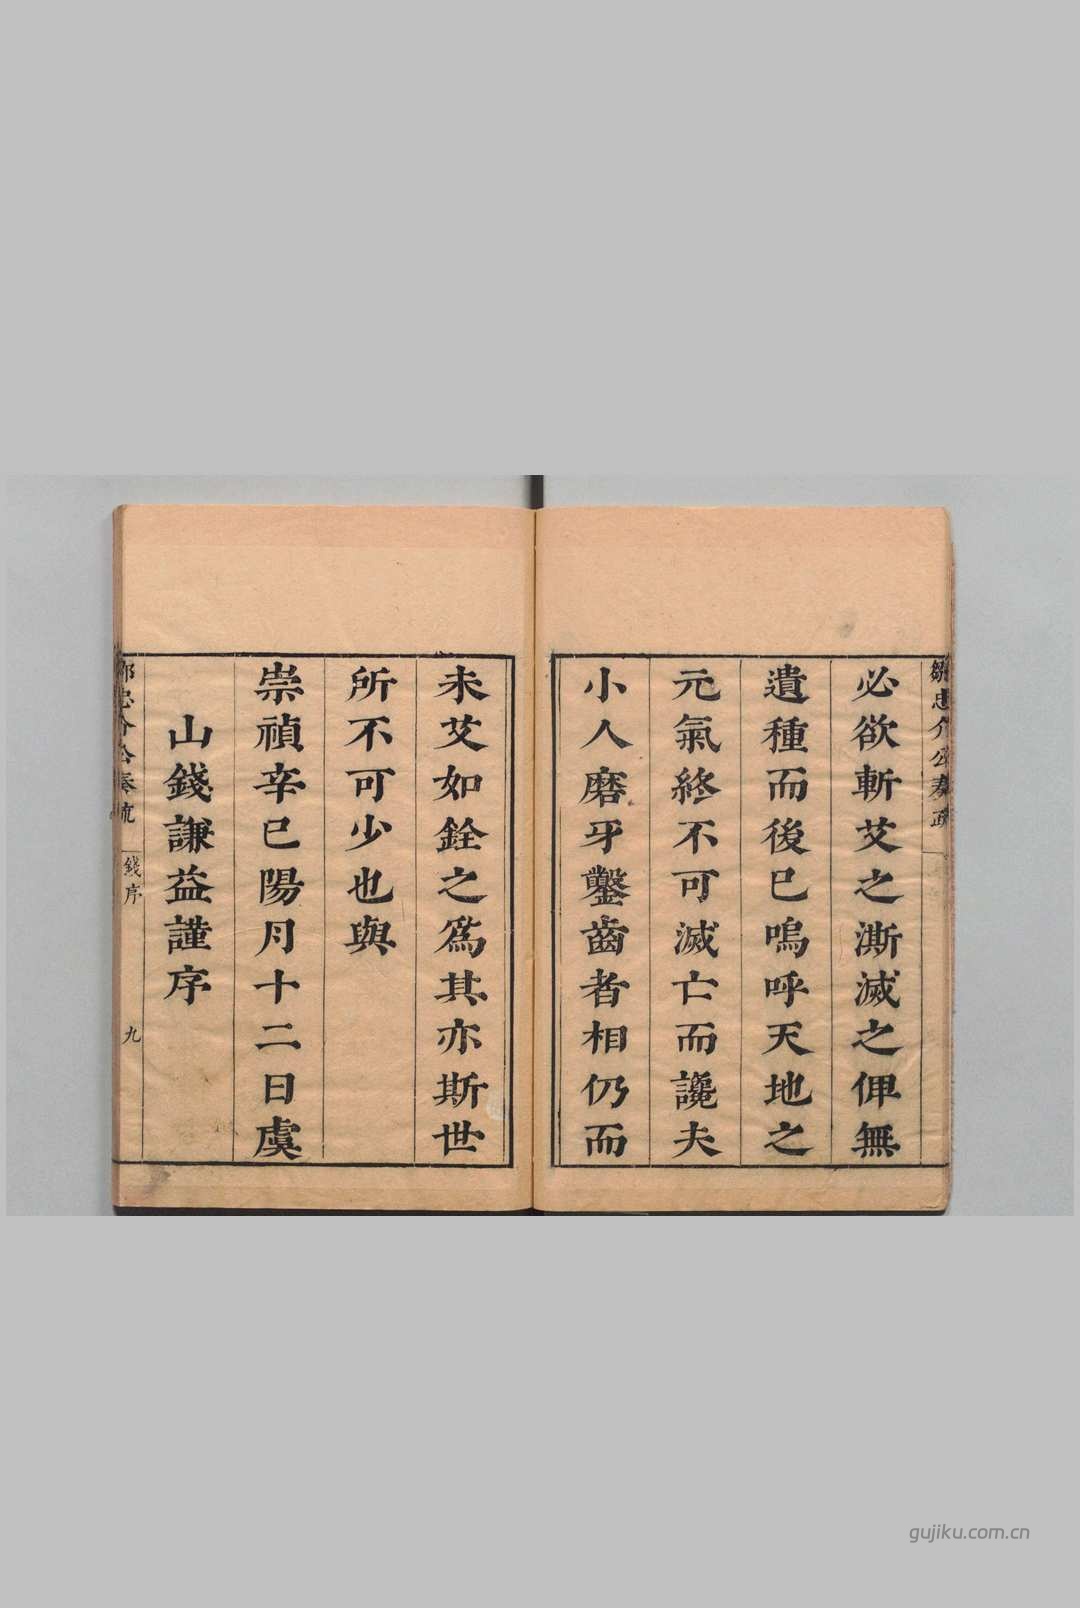 鄒忠介公奏疏
必欲斬艾之澌滅之俾無
遺種而後已嗚呼天地之
元氣終不可滅亡而讒夫
小人磨牙鑿齒者相仍而
未艾如銓之爲其亦斯世
所不可少也與
崇禎辛巳陽月十二日虞
山錢謙益謹序
鄒忠介公奏疏
錢序
九
gujiku.com.cn